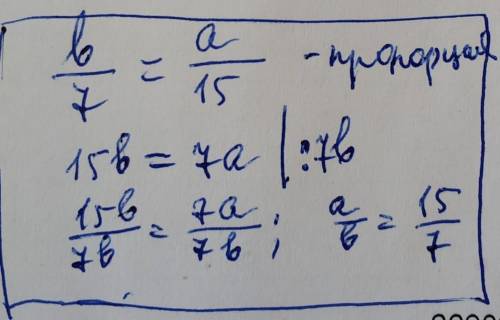 b/7 = a/15 - пропорция
15b = 7a | :7b
15b/7b = 7a/7b ; a/b = 15/7